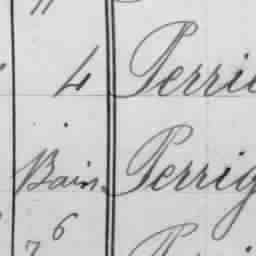 4 Perri
Bain Perrig
6
7